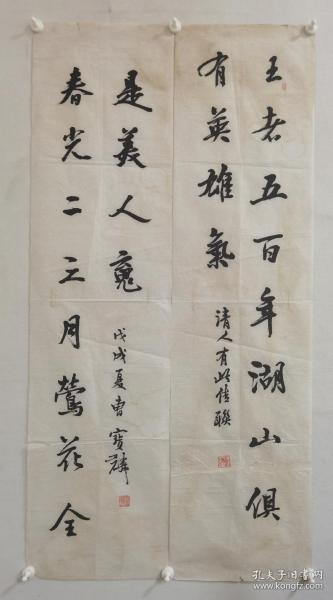 王者五百年湖山俱
有英雄氣
清人有此佳聯
春光二三月鶯花全
是美人魂
戊戌夏曹寶麟
孔夫子旧书网